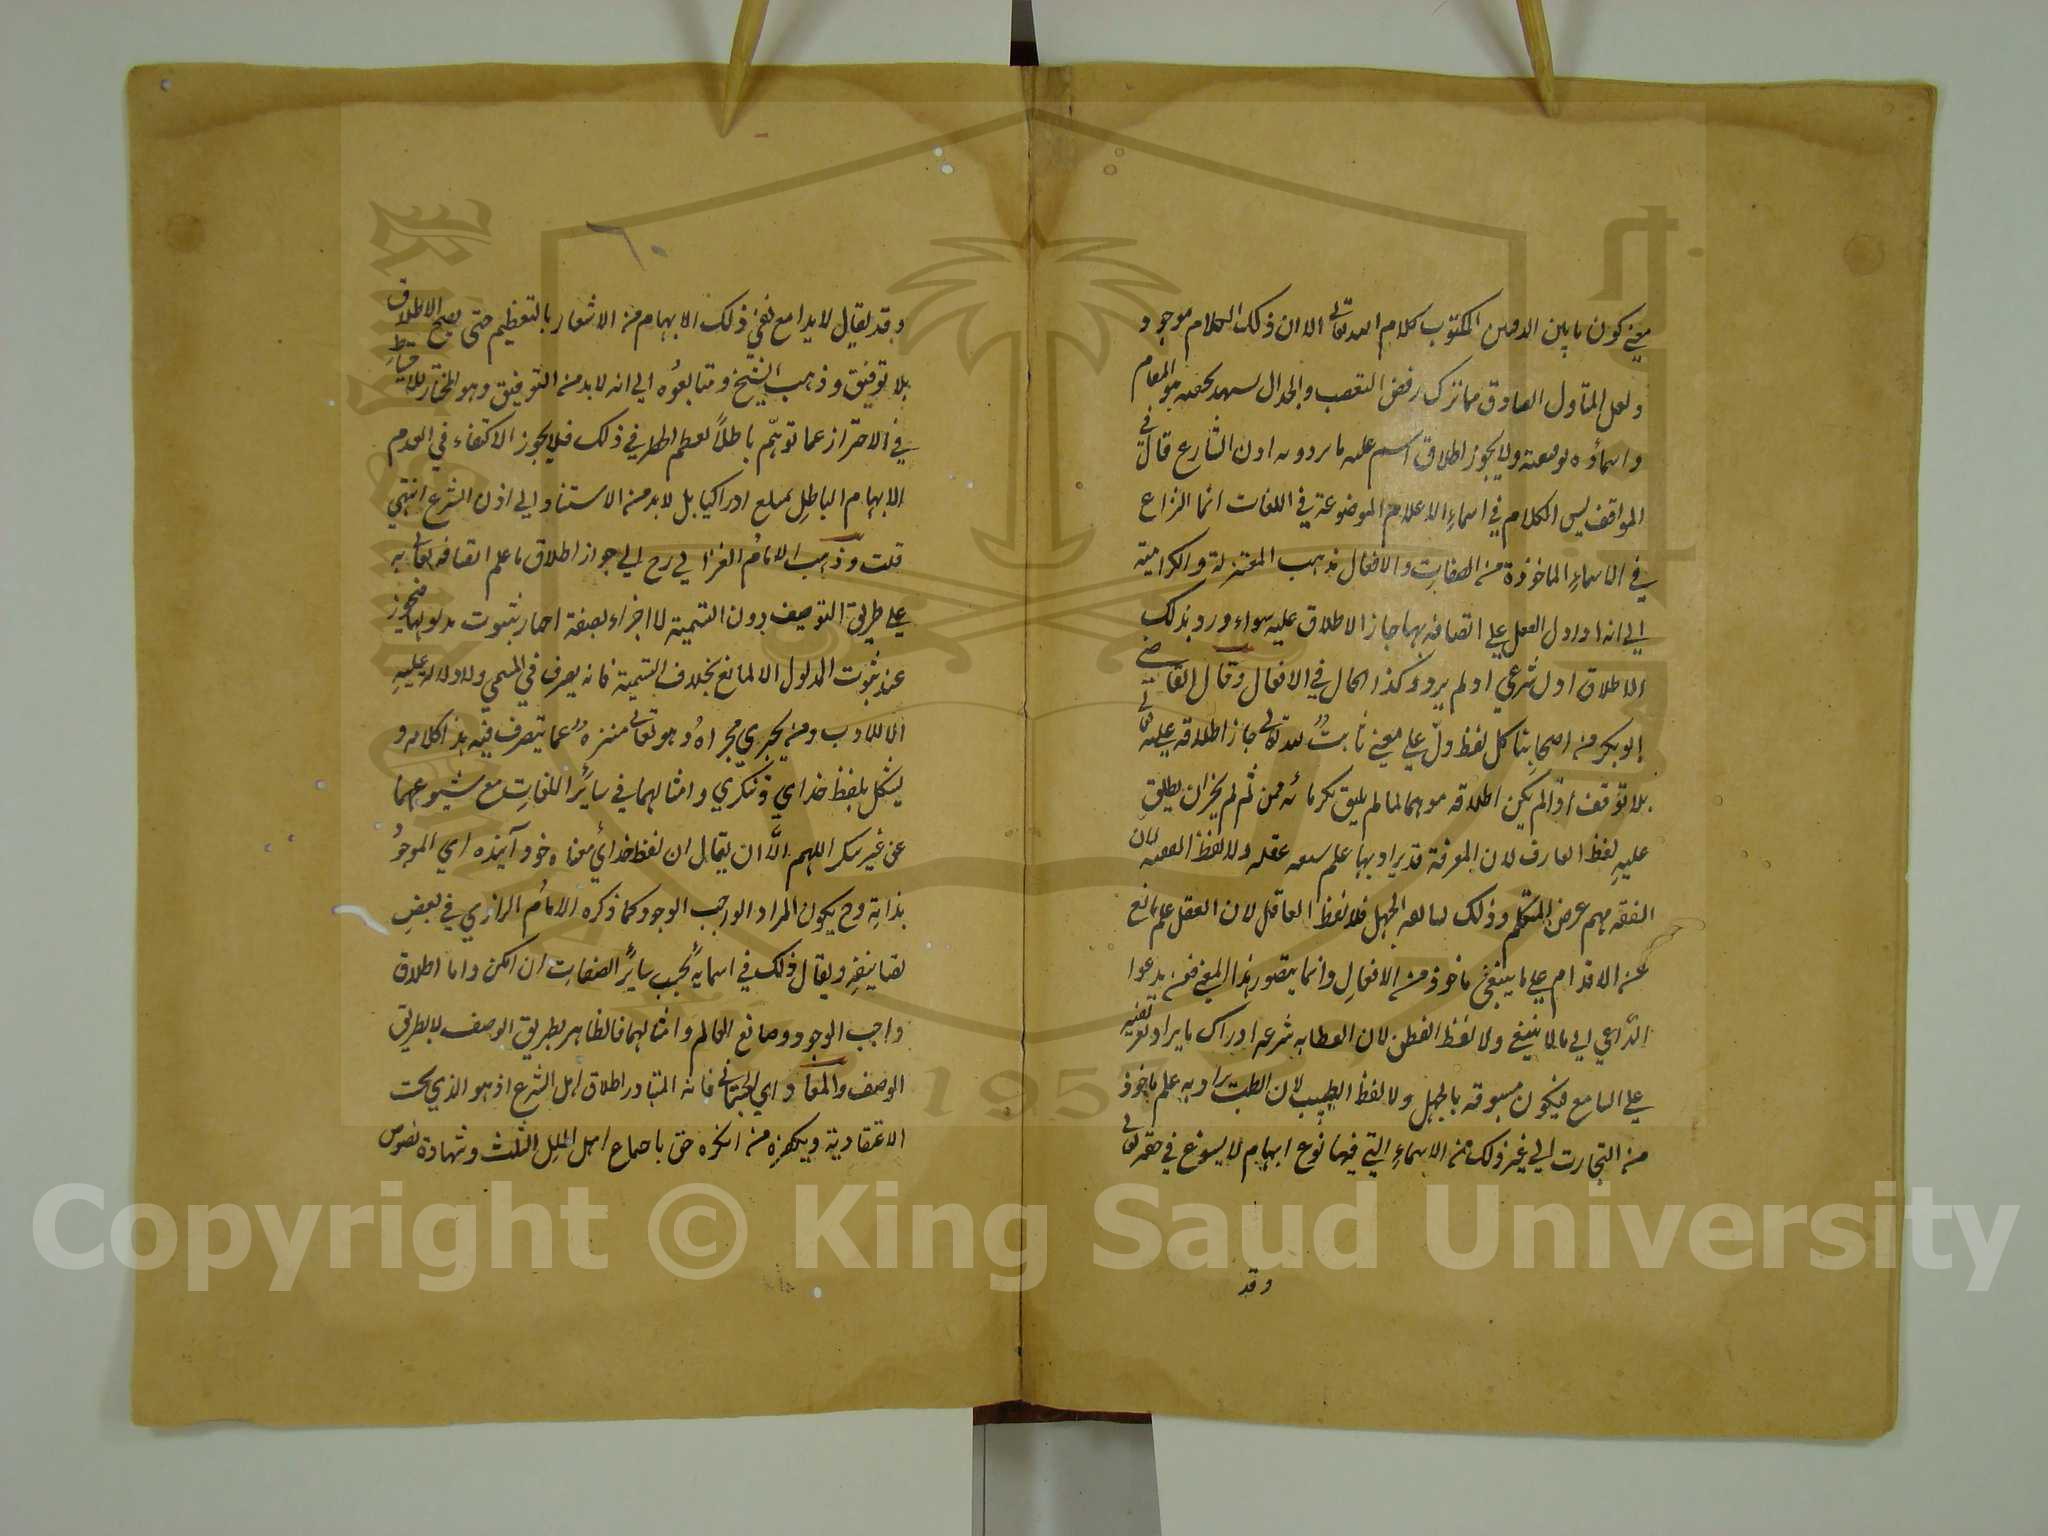 معنى كون ما بين الدفتين المكتوب كلام الله تعالى الا ان ذلك الكلام موجود
ولعل المتاول الصادق مما ترك رفض التعصب والجدال هو المقام
واسماؤه توقيفية ولا يجوز اطلاق اسم عليه ما يرد به اذن الشارع قال في
المواقف ليس الكلام في اسماء الاعلام الموضوعة في اللغات انما النزاع
في الاسماء الماخوذة من الصفات والافعال فذهب المعتزلة والكرامية
الى انه اذا دل العقل على اتصافه بها جاز الاطلاق عليه سواء ورد بذلك
الاطلاق اذن شرعي او لم يرد وكذا الحال في الافعال وقال القاضي
ابو بكر من اصحابنا كل لفظ دل على معنى ثابت لله تعالى جاز اطلاقه عليه تعالى
بلا توقف اذا لم يكن اطلاقه موهما لما لم يليق بكبريائه فمن ثم لم يجز ان يطلق
عليه لفظ العارف لان المعرفة قد يراد بها علم سبقه غفلة ولا لفظ الفقيه لان
الفقه فهم غرض المتكلم وذلك سابقه الجهل فلا لفظ العاقل لان العقل علم مانع
عن الاقدام على ما ينبغي ماخوذ من الافعال وانما يتصور هذا المعنى فمن يدعوا
الداعي الى ما لا ينبغي ولا لفظ الفطن لان الفطانة سرعة ادراك ما يراد تعريفه
على السامع فيكون مسبوقة بالجهل ولا لفظ الطبيب لان الطب يراد به علم ماخوذ
من التجارت الى غير ذلك من الاسماء التي فيها نوع ايهام لا يسوغ في حقه تعالى
وقد
وقد يقال لا بد مع نفي ذلك الايهام من الاشعار بالتعظيم حتى يصح الاطلاق
بلا توقيف وذهب الشيخ ومتابعوه الى انه لا بد من التوقيف وهو المختار للاحتياط
في الاحتراز عما توهم باطلا لعظم الخطر في ذلك فلا يجوز الاكتفاء في العدم
الايهام الباطل بمبلغ ادراكنا بل لا بد من الاستناد الى اذن الشرع انتهى
قلت وذهب الامام الغزالي رح الى جواز اطلاق ما علم اتصافه تعالى به
على طريق التوصيف دون التسمية لا اجراء الصفة اخبار بثبوت مدلولها فيجوز
عند ثبوت المدلول الا لمانع بخلاف التسمية فانه تصرف في المسمى ولا ولاية عليه
الا للاب ومن يجري مجراه وهو تعالى منزه عما يتصرف فيه هذا كلامه و
يشكل بلفظ خداي وتنكري وامثالهما في سائر اللغات مع شيوعهما
عن غير نكير اللهم الا ان يقال ان لفظ خداي معناه خود آينده اي الموجود
بذاته وح يكون المراد الواجب الوجود كما ذكره الامام الرازي في بعض
تصانيفه ويقال ذلك في اسمائه بحسب سائر الصفات ان امكن واما اطلاق
واجب الوجود وصانع العالم وامثالهما فالظاهر بطريق الوصف لا بطريق
الوصف والمعاد اي الجسماني فانه المتبادر اطلاق اهل الشرع اذ هو الذي يجب
الاعتقاد به ويكفر من انكره حق باجماع اهل الملل الثلث وشهادة نصوص
Copyright © King Saud University
1957